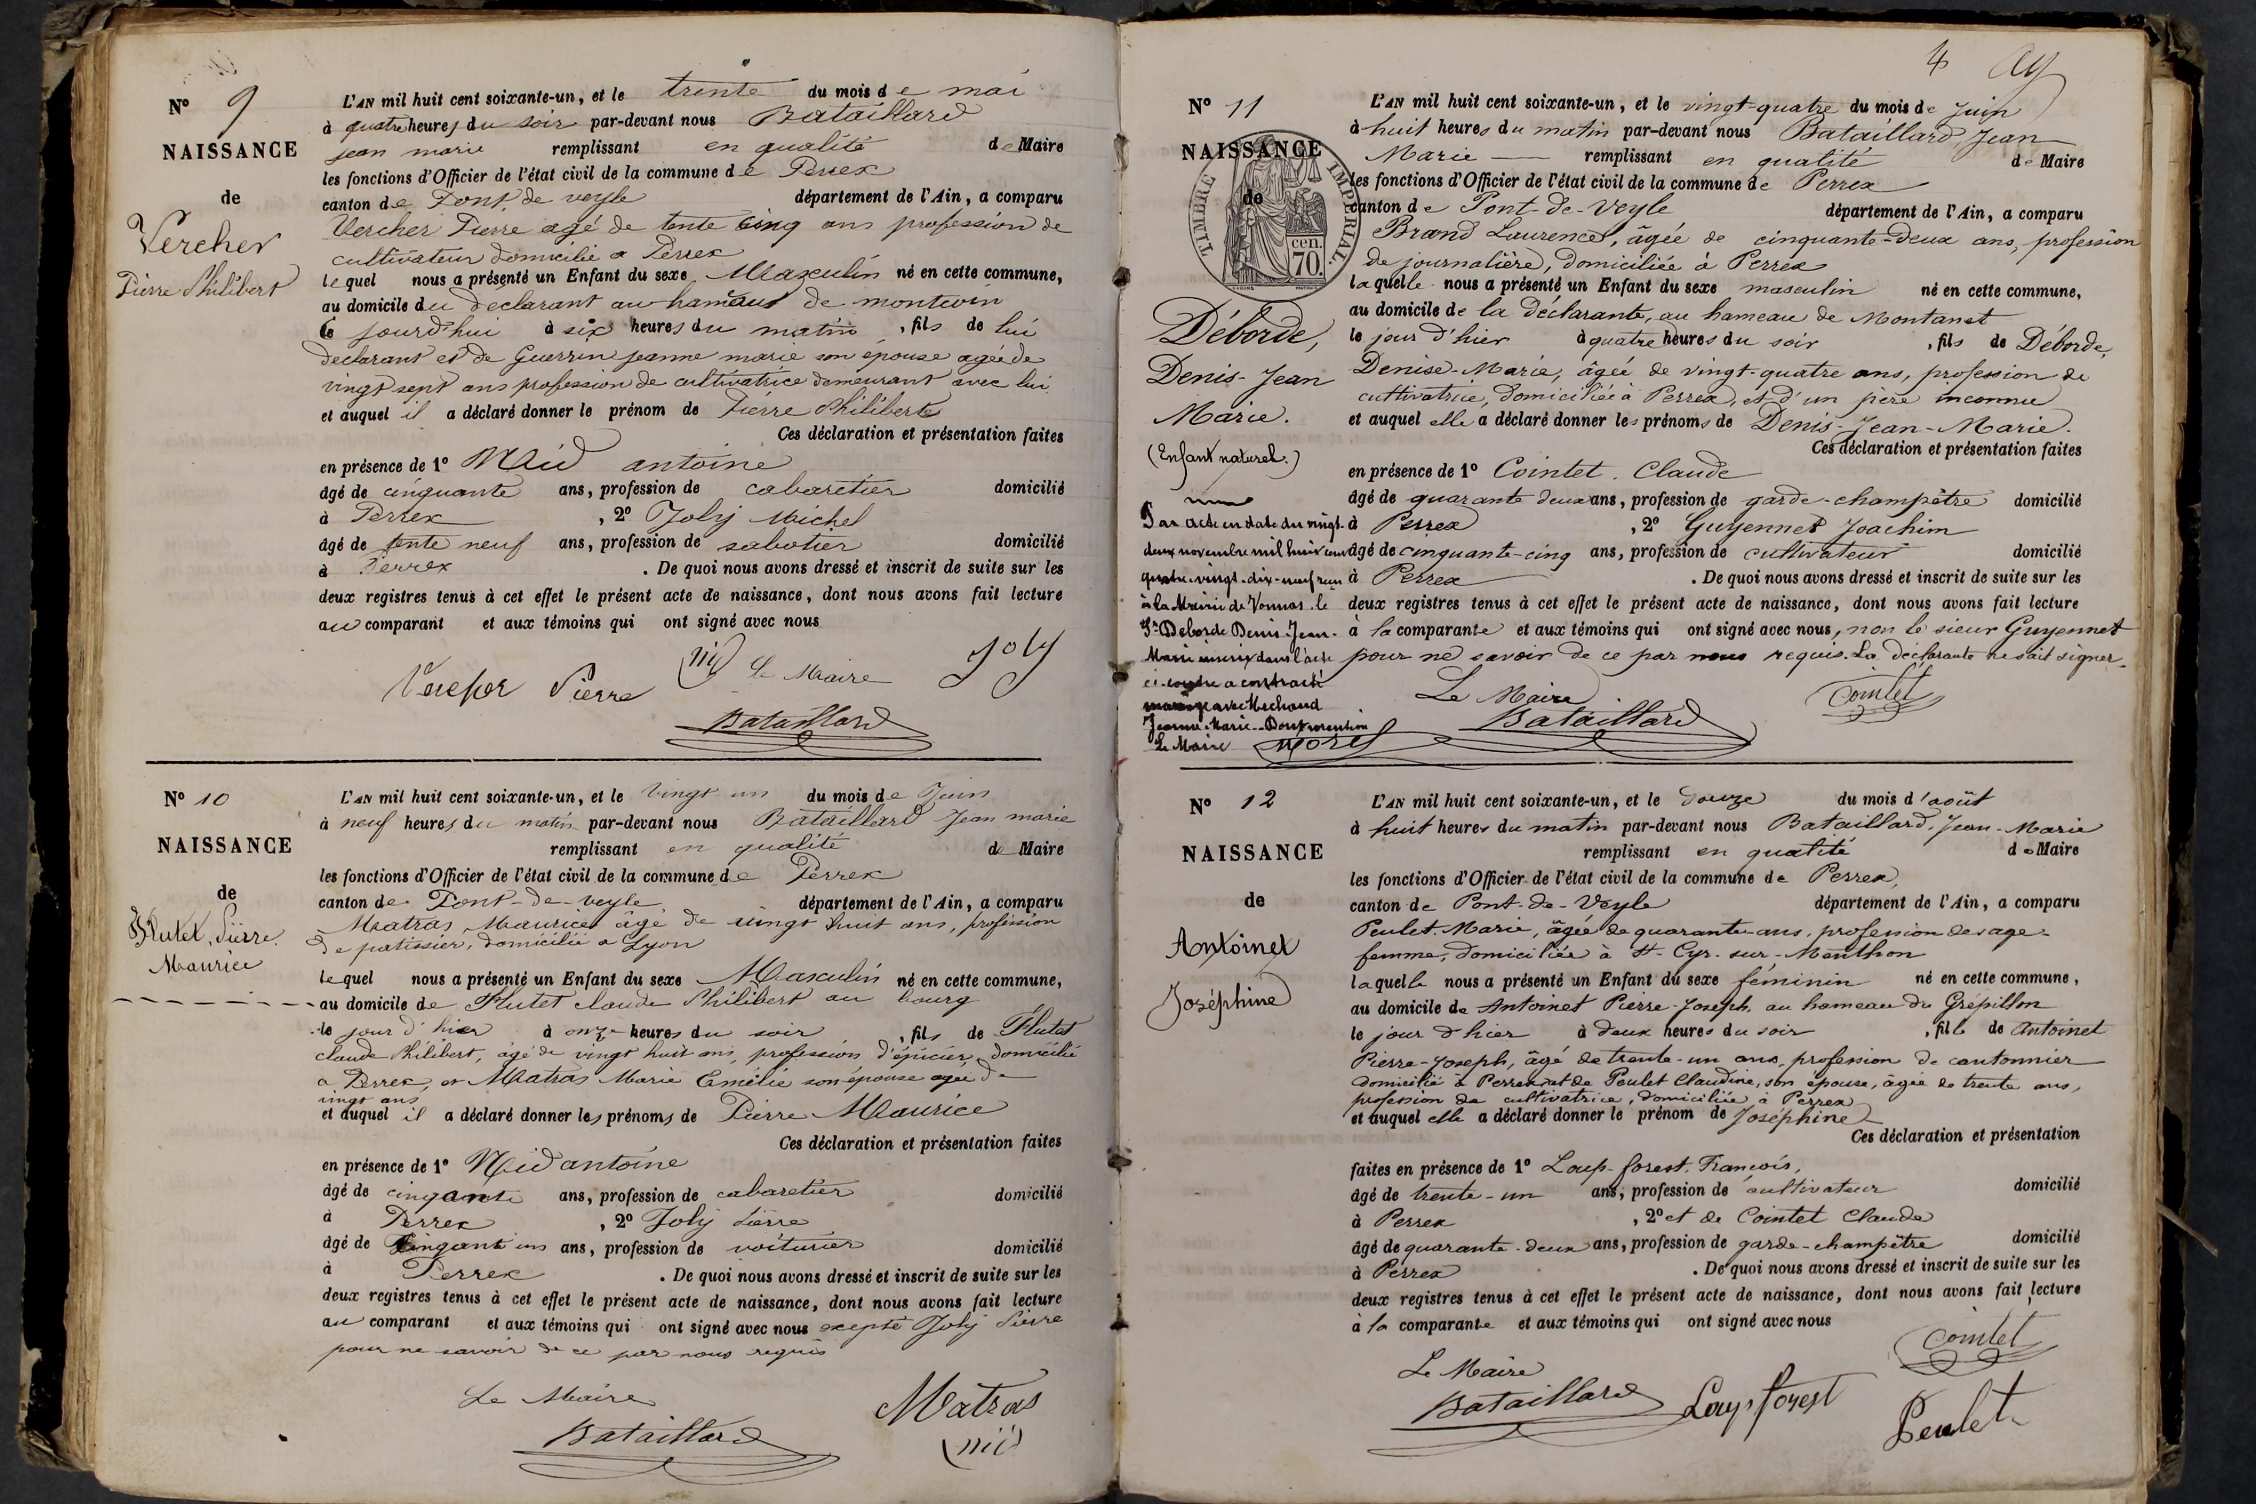 N° 9
NAISSANCE
de
Vercher
Pierre Philibert
L'AN mil huit cent soixante-un, et le trente du mois de mai
à quatre heures du soir par-devant nous Bataillard
jean marie remplissant en qualité de Maire
les fonctions d'Officier de l'état civil de la commune de Perrex
canton de Pont de veyle département de l'Ain, a comparu
Vercher Pierre agé de tente cinq ans profession de
cultivateur domicilié a Perrex
lequel nous a présenté un Enfant du sexe Masculin né en cette commune,
au domicile du declarant au hameau de montwin
ce jourd'hui à six heures du matin, fils de lui
declarant et de Guerrin jeanne marie son épouse agée de
vingt sept ans profession de cultivatrice demeurant avec lui
et auquel il a déclaré donner le prénom de Pierre Philibert
Ces déclaration et présentation faites
en présence de 1° Nid antoine
âgé de cinquante ans, profession de cabaretier domicilié
à Perrex, 2° Joly Michel
âgé de tente neuf ans, profession de sabotier domicilié
à Perrex. De quoi nous avons dressé et inscrit de suite sur les
deux registres tenus à cet effet le présent acte de naissance, dont nous avons fait lecture
au comparant et aux témoins qui ont signé avec nous
nid Le Maire Joly
Vercher Pierre
Bataillard
N° 10
NAISSANCE
de
Flutet, Pierre
Maurice
L'AN mil huit cent soixante-un, et le vingt un du mois de Juin
à neuf heures du matin par-devant nous Bataillard Jean marie
remplissant en qualité de Maire
les fonctions d'Officier de l'état civil de la commune de Perrex
canton de Pont-de-veyle département de l'Ain, a comparu
Matras Maurice âgé de vingt huit ans, profession
de patissier, domicilié a Lyon
lequel nous a présenté un Enfant du sexe Masculin né en cette commune,
au domicile de Flutet claude Philibert au bourg
le jour d'hier à onze heures du soir, fils de Flutet
claude Philibert, âgé de vingt huit ans, profession d'épicier domicilié
a Perrex, et Matras Marie Emélie son épouse agée de
vingt ans
et auquel il a déclaré donner les prénoms de Pierre Maurice
Ces déclaration et présentation faites
en présence de 1° Nid antoine
âgé de cinqante ans, profession de cabaretier domicilié
à Perrex, 2° Joly Pierre
âgé de cinqante un ans, profession de voiturier domicilié
à Perrex. De quoi nous avons dressé et inscrit de suite sur les
deux registres tenus à cet effet le présent acte de naissance, dont nous avons fait lecture
au comparant et aux témoins qui ont signé avec nous exepté Joly Pierre
pour ne savoir de ce par nous requis
Le Maire Matras
Bataillard nid
4
N° 11
NAISSANCE
de
TIMBRE IMPERIAL.
cen.
70.
Déborde,
Denis-Jean
Marie.
(Enfant naturel.)
Par acte en date du vingt-
deux novembre mil huit cent
quatre-vingt-dix-neuf reçu
à la Mairie de Vonnas, le
Sr Deborde Denis-Jean-
Marie inscrit dans l'acte
ci-contre a contracté
mariage avec Mechoud
Jeanne-Marie. Dont mention
Le Maire Morel
L'AN mil huit cent soixante-un, et le vingt-quatre du mois de Juin
à huit heures du matin par-devant nous Bataillard, Jean
Marie remplissant en qualité de Maire
les fonctions d'Officier de l'état civil de la commune de Perrex
canton de Pont-de-Veyle département de l'Ain, a comparu
Brand Laurence, âgée de cinquante-deux ans, profession
de journalière, domiciliée à Perrex
laquelle nous a présenté un Enfant du sexe masculin né en cette commune,
au domicile de la déclarante, au hameau de Montanet
le jour d'hier à quatre heures du soir, fils de Déborde,
Denise-Marie, âgée de vingt-quatre ans, profession de
cultivatrice, domiciliée à Perrex, et d'un père inconnu
et auquel elle a déclaré donner les prénoms de Denis-Jean-Marie.
Ces déclaration et présentation faites
en présence de 1° Cointet. Claude
âgé de quarante deux ans, profession de garde-champêtre domicilié
à Perrex, 2° Guyennet Joachim
âgé de cinquante-cinq ans, profession de cultivateur domicilié
à Perrex. De quoi nous avons dressé et inscrit de suite sur les
deux registres tenus à cet effet le présent acte de naissance, dont nous avons fait lecture
à la comparante et aux témoins qui ont signé avec nous, non le sieur Guyennet
pour ne savoir de ce par nous requis. La déclarante ne sait signer.
Le Maire Cointet
Bataillard
N° 12
NAISSANCE
de
Antoinet
Joséphine
L'AN mil huit cent soixante-un, et le douze du mois d'août
à huit heures du matin par-devant nous Bataillard, Jean-Marie
remplissant en qualité de Maire
les fonctions d'Officier de l'état civil de la commune de Perrex,
canton de Pont-de-Veyle département de l'Ain, a comparu
Peulet. Marie, âgée de quarante-ans, profession de sage-
femme, domiciliée à St-Cyr-sur-Menthon
laquelle nous a présenté un Enfant du sexe féminin né en cette commune,
au domicile de Antoinet Pierre-Joseph, au hameau du Grépillon
le jour d'hier à deux heures du soir, fille de Antoinet
Pierre-Joseph, âgé de trente-un ans, profession de cantonnier
domicilié à Perrex et de Peulet Claudine, son épouse, âgée de trente ans,
profession de cultivatrice, domiciliée à Perrex
et auquel elle a déclaré donner le prénom de Joséphine
Ces déclaration et présentation
faites en présence de 1° Loup-forest, François,
âgé de trente-un ans, profession de cultivateur domicilié
à Perrex, 2° et de Cointet Claude
âgé de quarante-deux ans, profession de garde-champêtre domicilié
à Perrex. De quoi nous avons dressé et inscrit de suite sur les
deux registres tenus à cet effet le présent acte de naissance, dont nous avons fait lecture
à la comparante et aux témoins qui ont signé avec nous
Cointet
Le Maire
Bataillard Loup forest
Peulet